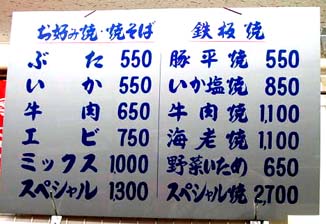 お好み焼・焼そば
ぶた 550
いか 550
牛肉 650
エビ 750
ミックス 1,000
スペシャル 1,300
鉄板焼
豚平焼 550
いか塩焼 850
牛肉焼 1,100
海老焼 1,100
野菜いため 650
スペシャル焼 2,700